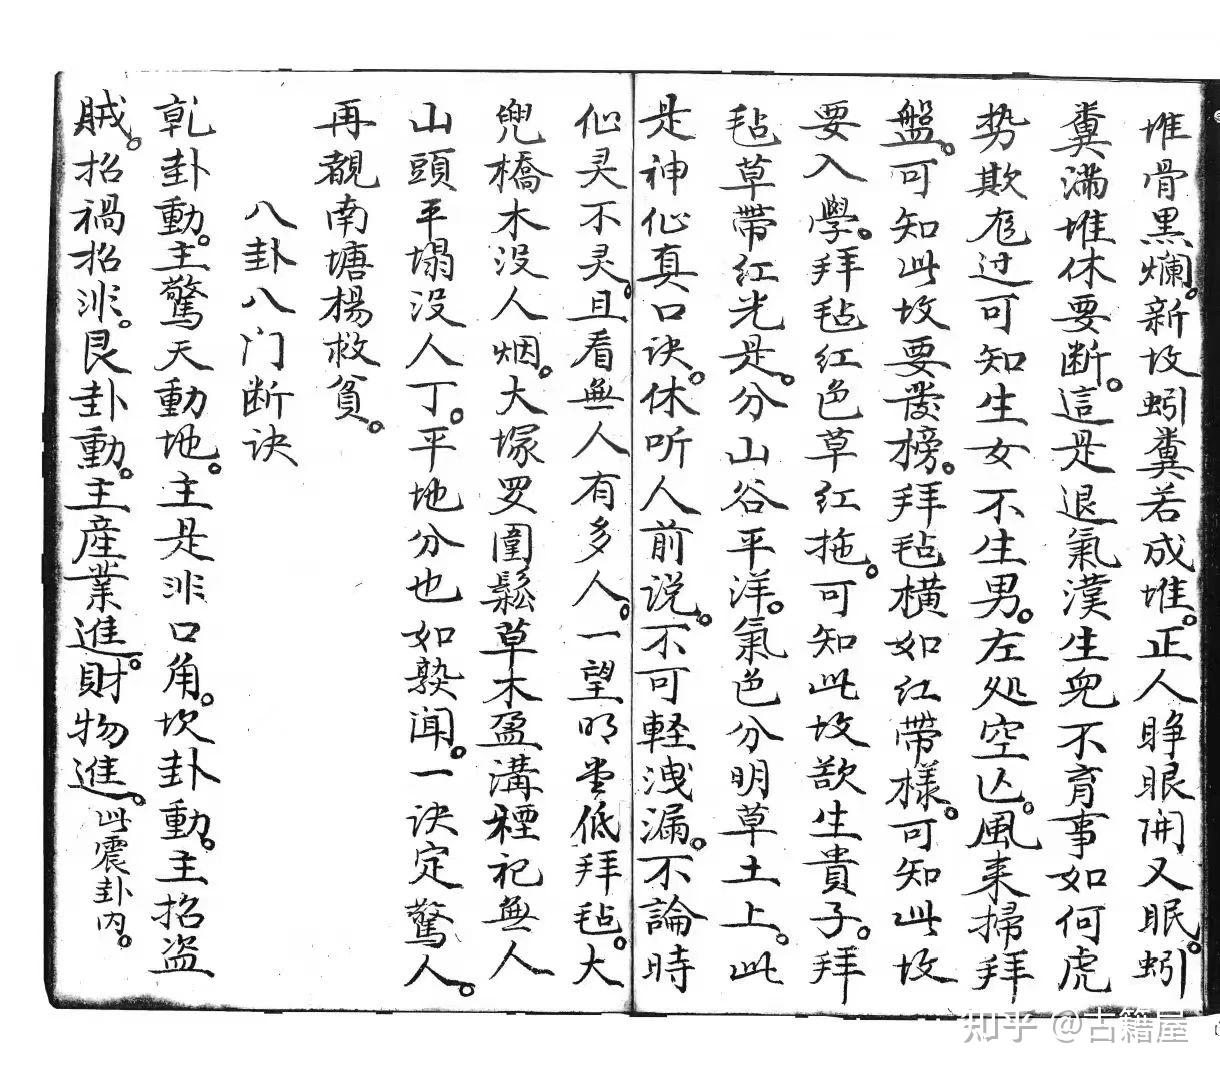 堆骨黑爛。新坟蚓糞若成堆。正人睁眼闭又眠。蚓
糞滿堆休要断。這是退氣漢生兒不育事如何虎
势欺尨过可知生女不生男。左处空亾。風来掃拜
盤。可知此坟要發榜。拜毡横如红带樣。可知此坟
要入學。拜毡红色草红拖。可知此坟歆生貴子。拜
毡草带红光是。分山谷平洋。氣色分明草土上。此
是神仙真口诀。休听人前说。不可軽洩漏。不論時
仙灵不灵。且看無人有多人。一望明堂低拜毡。大
兜橋木没人烟。大塚罗圍鬆草木盈溝禋祀無人
山頭平塌没人丁。平地分也如熟闻。一诀定驚人。
再觀南塘楊救貧。
八卦八门断诀
乾卦動。主驚天動地。主是非口角。坎卦動。主招盗
贼。招禍招非。艮卦動。主産業進。財物進。此震卦内。
知乎 @古籍屋